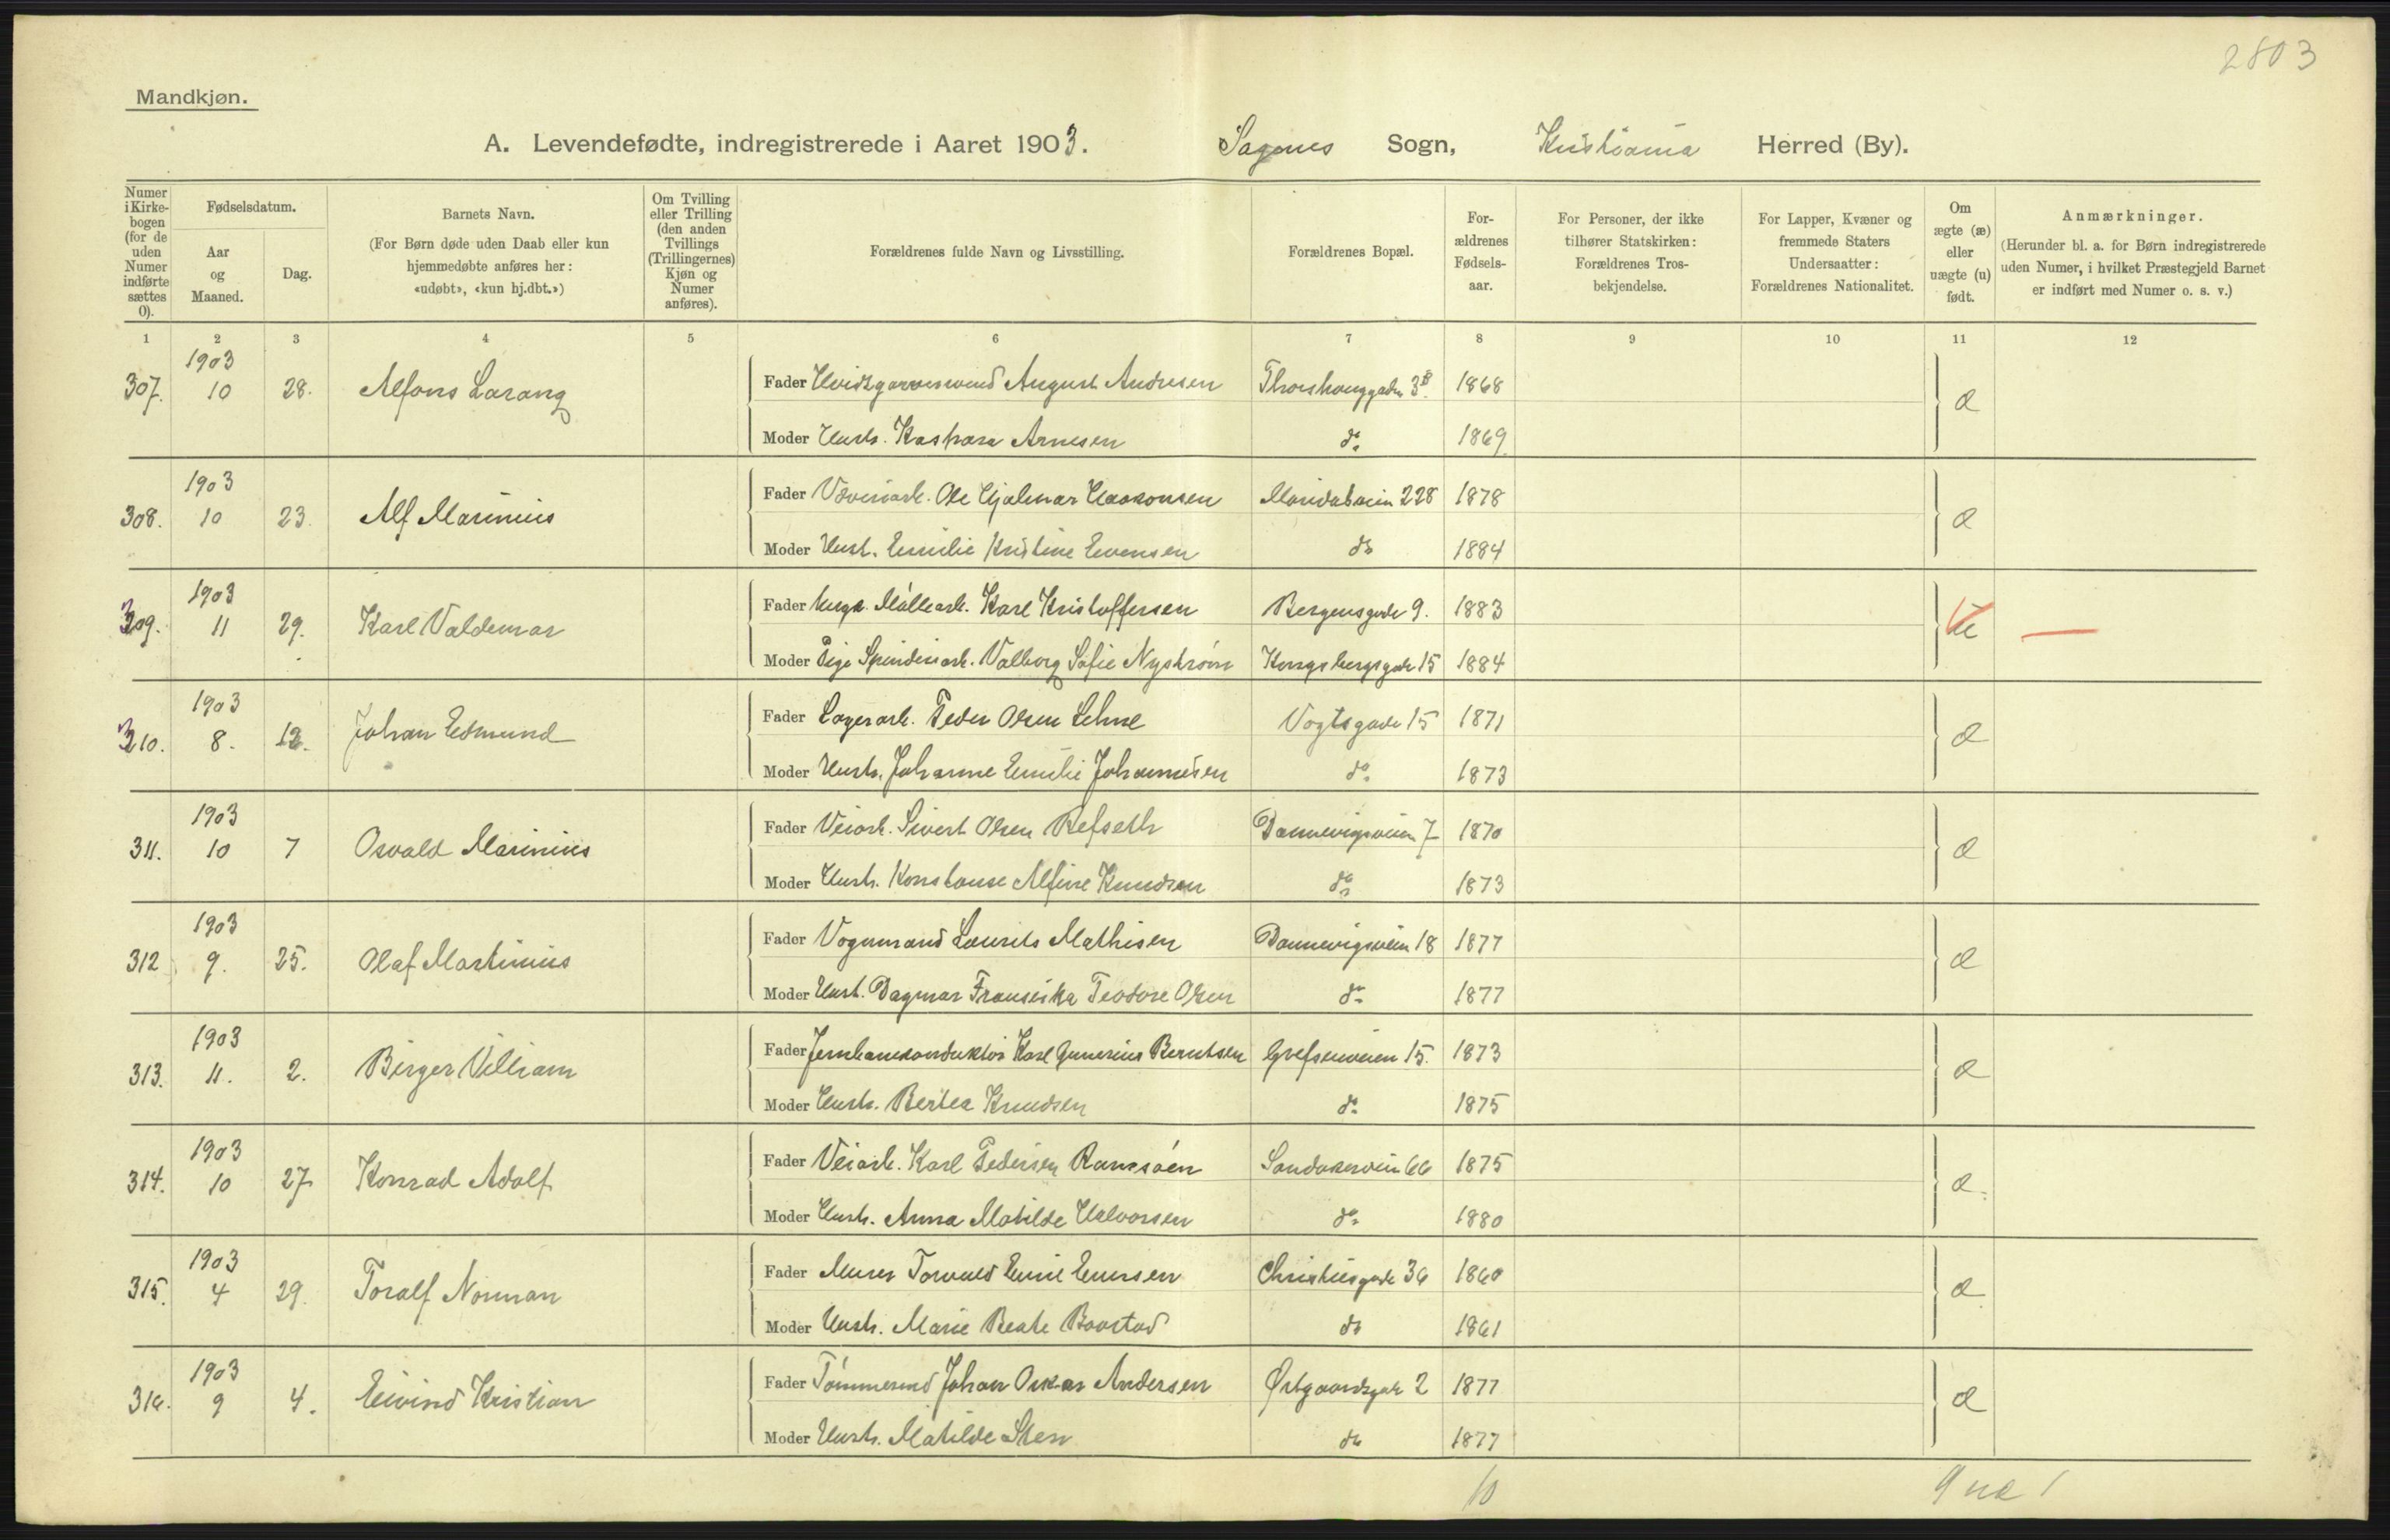 2803
Mandkjøn.
A. Levendefødte, indregistrerede i Aaret 1903. Sagenes Sogn, Kristiania Herred (By).
Numer i Kirkebogen (for de uden Numer indførte sættes 0).
Fødselsdatum.
Aar og Maaned.
Dag.
Barnets Navn.
(For Børn døde uden Daab eller kun hjemmedøbte anføres her: «udøbt», «kun hj.dbt.»)
Om Tvilling eller Trilling (den anden Tvillings (Trillingernes) Kjøn og Numer anføres).
Forældrenes fulde Navn og Livsstilling.
Forældrenes Bopæl.
Forældrenes Fødselsaar.
For Personer, der ikke tilhører Statskirken: Forældrenes Trosbekjendelse.
For Lapper, Kvæner og fremmede Staters Undersaatter: Forældrenes Nationalitet.
Om ægte (æ) eller uægte (u) født.
Anmærkninger.
(Herunder bl. a. for Børn indregistrerede uden Numer, i hvilket Præstegjeld Barnet er indført med Numer o. s. v.)
1 2 3 4 5 6 7 8 9 10 11 12
307. 1903 10 28. Alfons Larang Fader August Andresen 3B. 1868 æ
Moder Hustr. Arnesen do 1869
308. 1903 10 23. Alf Marinius Fader Væveriarb. Ole Hjalmar Haakonsen Maridalsveien 228 1878 æ
Moder Hustr. Emilie Kristine Evensen do 1884
309. 1903 11 29. Karl Valdemar Fader Ungk. Møllearb. Karl Kristoffersen Bergensgade 9. 1883 u
Moder Pige Spinderiarb. Valborg Sofie Nystrøm Kongsbergsgade 15 1884
310. 1903 8. 12. Johan Edmund Fader Lagerarb. Peder Olsen Vogtsgade 15 1871 æ
Moder Hustr. Johanne Emilie Johannesen do 1873
311. 1903 10 7 Osvald Marinius Fader Veiarb. Sivert Olsen Refseth Dannevigsveien 7 1870 æ
Moder Hustr. Konstanse Alfine Knudsen do 1873
312 1903 9. 25. Olaf Martinius Fader Vognmand Laurits Mathisen Dannevigsveien 18 1877 æ
Moder Hust. Dagmar Fransiska Teodore Olsen do 1877
313. 1903 11. 2. Birger Villiam Fader Jernbanekonduktør Karl Gunerius Berntsen Grefsenveien 15. 1873 æ
Moder Hustr. Bertea Knudsen do 1875
314. 1903 10 27 Konrad Adolf Fader Veiarb. Karl Pedersen Ramsøen Sandakerveien 66 1875 æ
Moder Hustr. Anna Matilde Halvorsen do 1880
315. 1903 4 29. Toralf Norman Fader Murer Torvald Emil Christiesgade 36 1860 æ
Moder Hustr. Marie Beate Baastad do 1861
316. 1903 9 4. Eivind Kristian Fader Tømmermd Johan Oskar Andersen Østgaardsgade 2 1877 æ
Moder Hustr. Matilde Sten do 1877
10 9 1